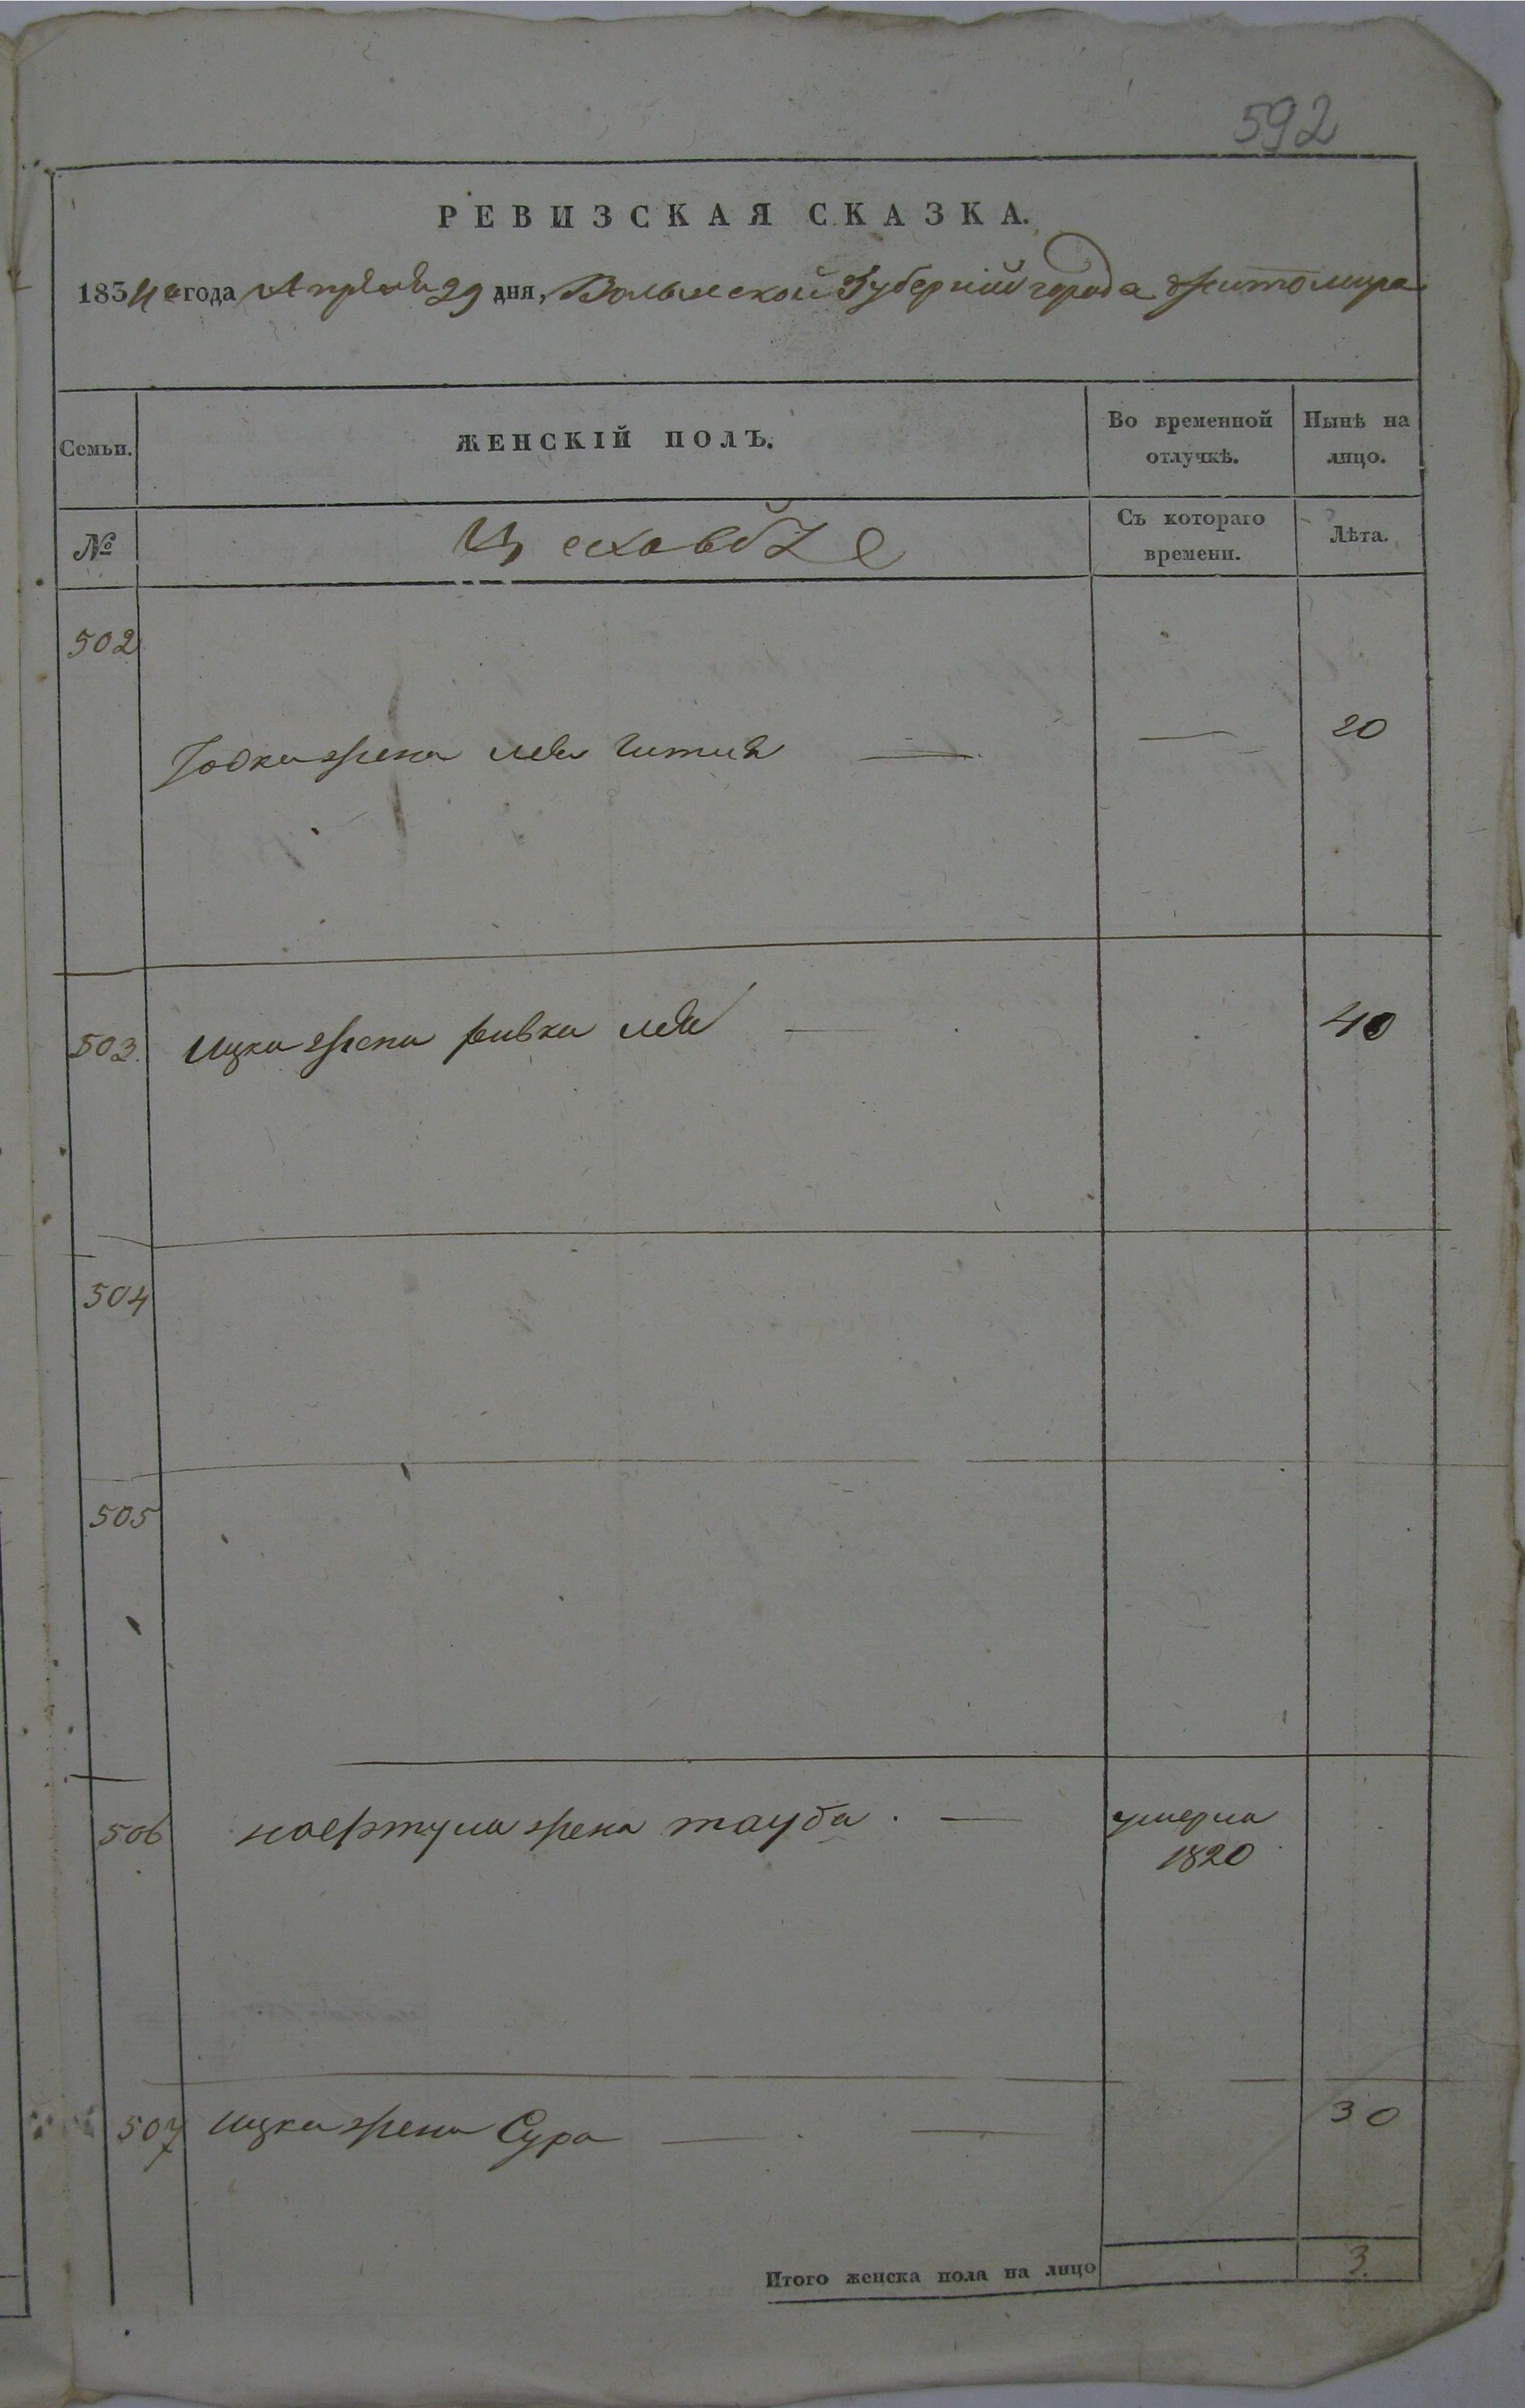 592
РЕВИЗСКАЯ СКАЗКА.
1834го года Апреля 29 дня, Волынской Губернии города Житомира
Семьи.
ЖЕНСКІЙ ПОЛЪ.
Во временной отлучкѣ.
Нынѣ на лицо.
№
Цеховые
Съ котораго времени.
Лѣта.
502
Іодка жена Леи — — 20
503. Ицка жена ривка Леи — 40
504
505
506 жена тауба. — умерла
1820
507 Ицка жена Сура — — 30
Итого женска пола на лицо 3.